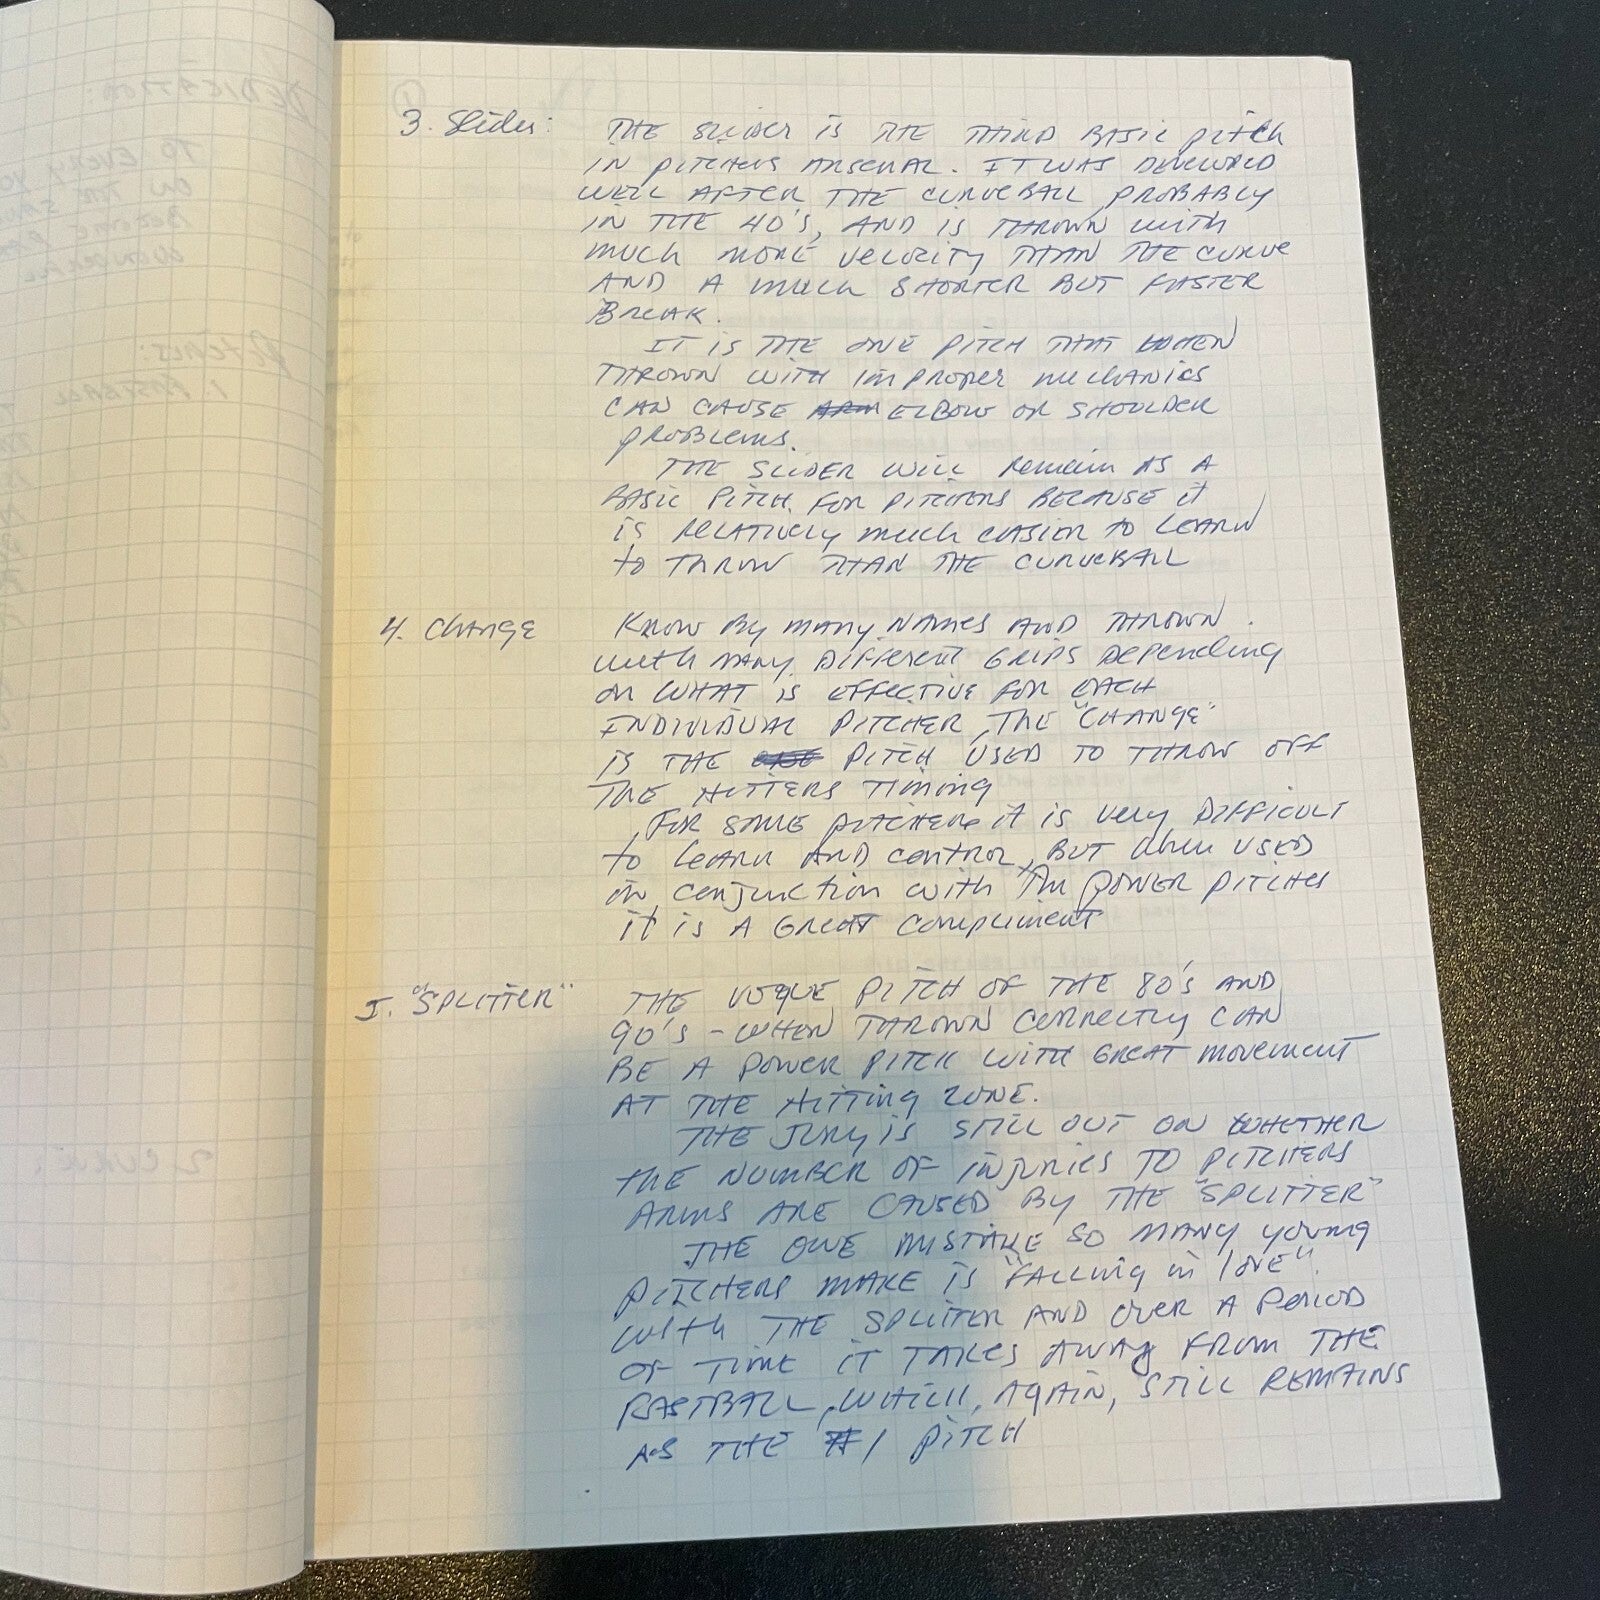 3. Slider: THE SLIDER IS THE THIRD BASIC PITCH
IN PITCHERS ARSENAL. IT WAS DEVELOPED
WELL AFTER THE CURVEBALL PROBABLY
IN THE 40'S, AND IS THROWN WITH
MUCH MORE VELOCITY THAN THE CURVE
AND A MUCH SHORTER BUT FASTER
BREAK.
IT IS THE ONE PITCH THAT WHEN
THROWN WITH IMPROPER MECHANICS
CAN CAUSE ARM ELBOW OR SHOULDER
PROBLEMS.
THE SLIDER WILL REMAIN AS A
BASIC PITCH FOR PITCHERS BECAUSE IT
IS RELATIVELY MUCH EASIER TO LEARN
TO THROW THAN THE CURVEBALL
4. CHANGE KNOW BY MANY NAMES AND THROWN
WITH MANY DIFFERENT GRIPS DEPENDING
ON WHAT IS EFFECTIVE FOR EACH
INDIVIDUAL PITCHER, THE "CHANGE"
IS THE PITCH USED TO THROW OFF
THE HITTERS TIMING
FOR SOME PITCHERS IT IS VERY DIFFICULT
TO LEARN AND CONTROL, BUT WHEN USED
IN CONJUNCTION WITH THE POWER PITCHES
IT IS A GREAT COMPLIMENT
I. "SPLITTER" THE VOGUE PITCH OF THE 80'S AND
90'S - WHEN THROWN CORRECTLY CAN
BE A POWER PITCH WITH GREAT MOVEMENT
AT THE HITTING ZONE.
THE JURY IS STILL OUT ON WHETHER
THE NUMBER OF INJURIES TO PITCHERS
ARMS ARE CAUSED BY THE "SPLITTER"
THE ONE MISTAKE SO MANY YOUNG
PITCHERS MAKE IS "FALLING IN LOVE"
WITH THE SPLITTER AND OVER A PERIOD
OF TIME IT TAKES AWAY FROM THE
FASTBALL, WHICH, AGAIN, STILL REMAINS
AS THE #1 PITCH